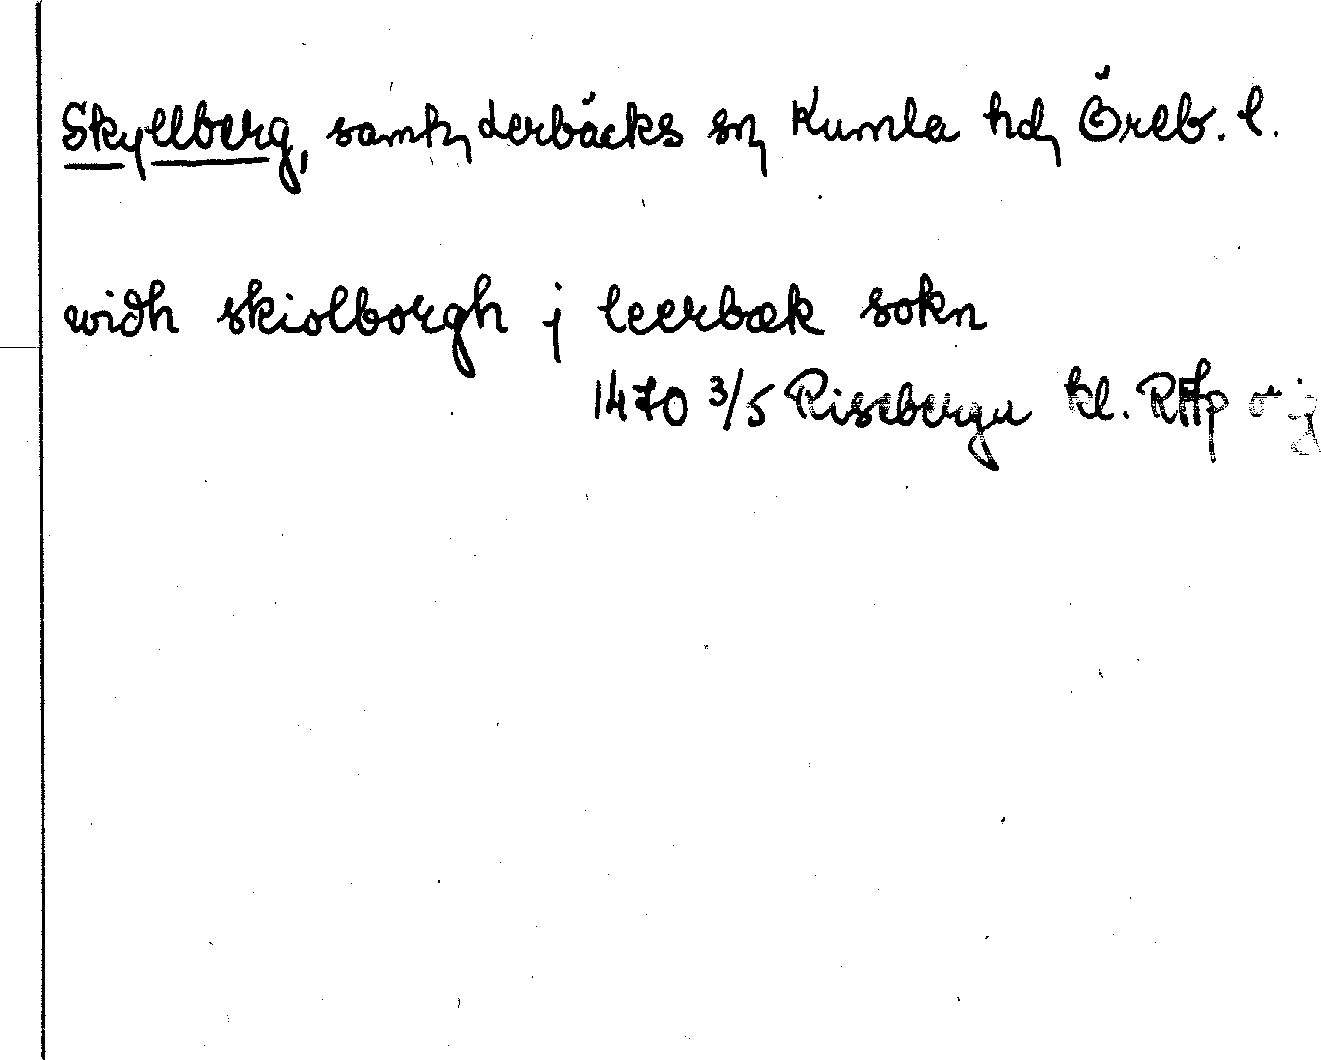 Skyllberg, samh, Lerbäcks sn, Kumla hd, Öreb. l.
widh skiolborgh j leerbæk sokn
1470 3/5 Riseberga kl. RAp orig